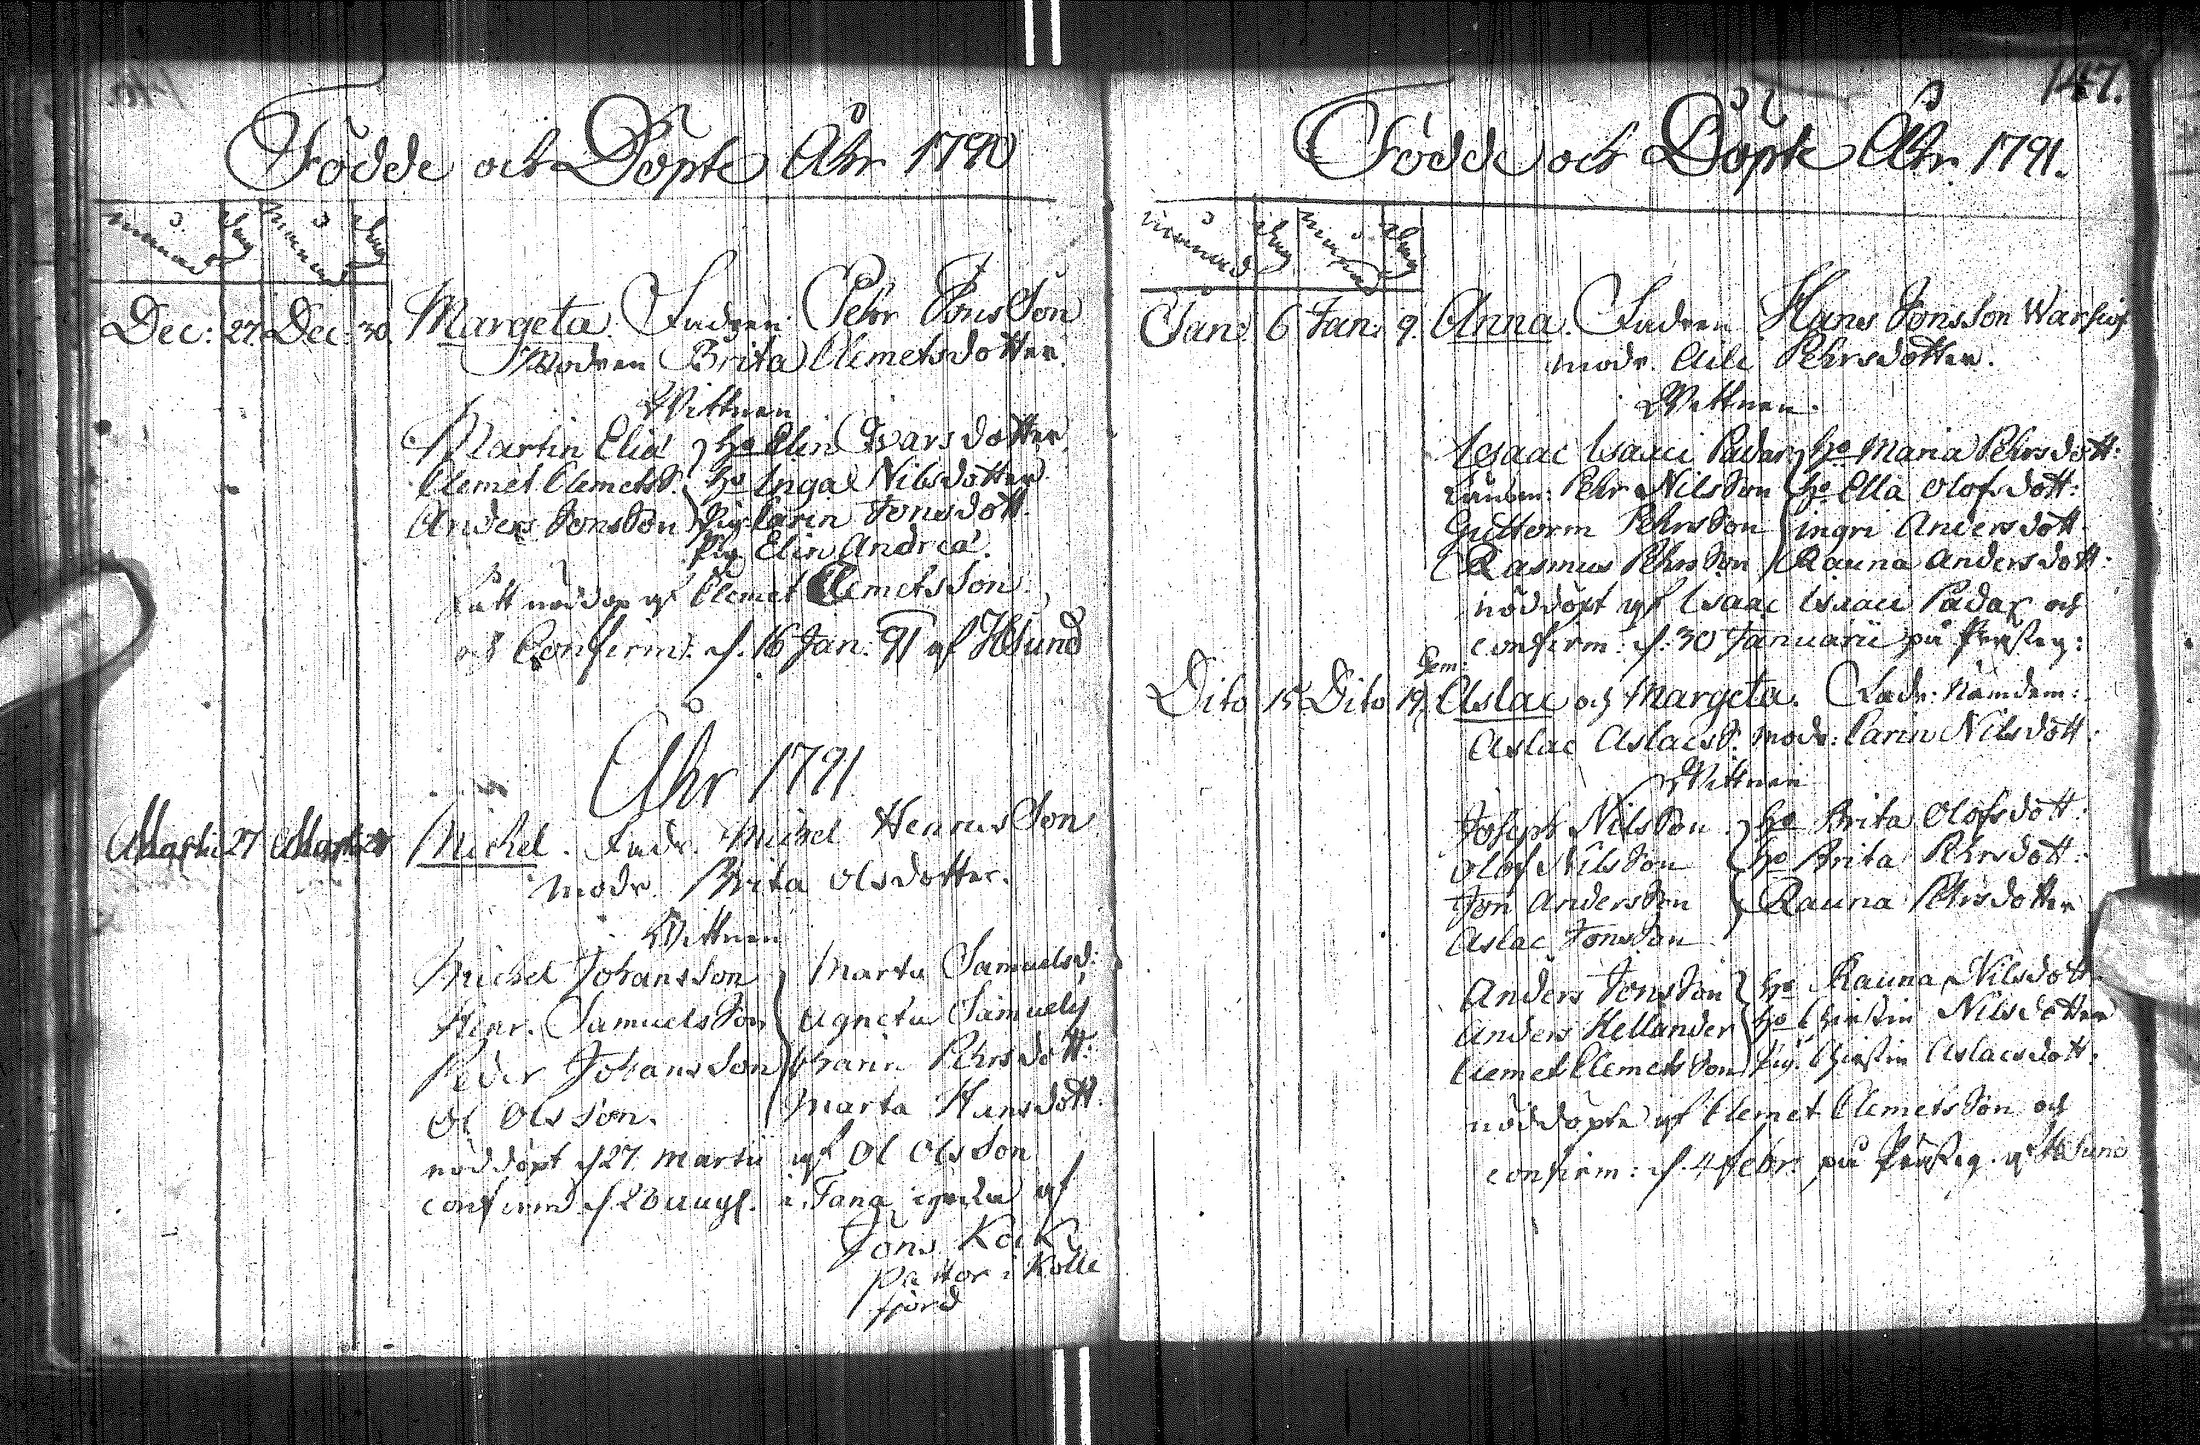 Födde och Döpte Åhr 1790
månad dag månad dag
Dec: 27. Dec: 30. Margeta. Fadren Pehr JonsSon
Modren Brita Clemetsdotter.
Wittnen
Martin Eliæ hu Elin Ivarsdotter
Clemet ClemetsS. hu Inga Nilsdotter
Anders JonsSon pig. Carin Jonsdott.
Pig. Elin Andreæ.
nöddop af Clemet ClemetsSon
och Confirm: d. 16 Jan: 91 af HSund
Åhr 1791
Martii 27 Martii Michel. Fadr. Michel HenricsSon
modr. Brita Olsdotter.
Wittnen
Michel JohansSon Marta Samuelsd:
Henr. SamuelsSon Agneta Samuels
Peder JohansSon Carin Pehrsdott:
Ol OlsSon. Marta Hansdott.
nöddöpt d 27 Martii af Ol OlsSon
confirm d 28 aug. i Tana af
Jöns Kock
pastor i Kolle
fjord
147.
Födde och Döpte Åhr 1791.
månad dag månad dag
Jan: 6 Jan: 9. Anna. Fadren Hans JonsSon
modr. Aile Pehrsdotter.
Wittnen.
Isaac Isaaci Padar hu Maria Pehrsdott:
Pehr NilsSon hu Ella Olofsdott:
Guttorm PehrsSon ingri Andersdott
Rasmus PehrsSon Rauna Andersdott:
nöddöpt af Isaac Isaaci Padar och
confirm: d. 30 Januarii på
Gem:
Dito 15. Dito 19. Aslac och Margeta. Fadr: Nämdem:
Aslac AslacsS. modr: Carin Nilsdott:
Wittnen
Joseph NilsSon hu Brita Olofsdott:
Olof NilsSon hu Brita Pehrsdott:
Jon AndersSon Rauna Pehrsdotter
Aslac JonsSon
Anders JonsSon hu Rauna Nilsdott:
Anders Hellander hu Christin Nilsdotter
Clemet ClemetsSon pig. Christin Aslacsdott.
nöddöpte af Clemet ClemetsSon och
confirm: d. 4 Febr: på af HSund